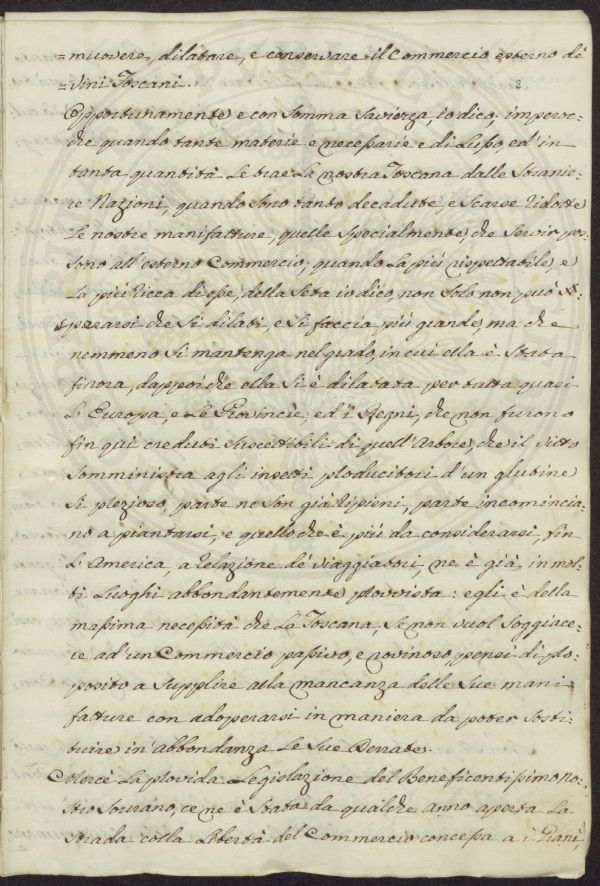 =muovere, dilatare, e conservare il Commercio esterno de'
=Vini Toscani.
2
Opportunamente, e con somma Saviezza, io dico: imperoc=
chè quando tante materie e necessarie e di Lusso, ed in
tanta quantità Le trae La nostra Toscana dalle Stranie=
re Nazioni, quando Sono tanto decadute, e Scarse ridotte
Le nostre manifatture, quelle Specialmente, che Servir pos=
sono all'esterno Commercio; quando La più rispettabile, e
La più ricca di esse, della Seta io dico, non Solo non può
sperarsi che Si dilati, e Si faccia più grande, ma che
nemmeno Si mantenga nel grado, in cui ella è Stata
finora, dappoichè ella Si è dilatata per tutta quasi
L'Europa, e Le Provincie, ed i Regni, che non furono
fin qui creduti Suscettibili di quell'Arbore, che il Vitto
Somministra agli insetti producitori d'un glutine
Si prezioso, parte ne Son già ripieni, parte incomincia=
no a piantarsi, e quello che è più da considerarsi, fin
L'America, a relazione de' Viaggiatori, ne è già in mol=
ti Luoghi abbondantemente provvista: egli è della
massima necessità che La Toscana, Se non vuol Soggiace=
re ad un Commercio passivo, e rovinoso, pensi di pro=
posito a Supplire alla mancanza delle Sue mani=
fatture con adoperarsi in maniera da poter Sosti=
tuire in abbondanza Le Sue Derrate.
Mercè La provida Legislazione del Beneficentissimo no=
stro Sovrano, ce ne è Stata da qualche anno aperta La
Strada colla Libertà del Commercio concessa a i Grani